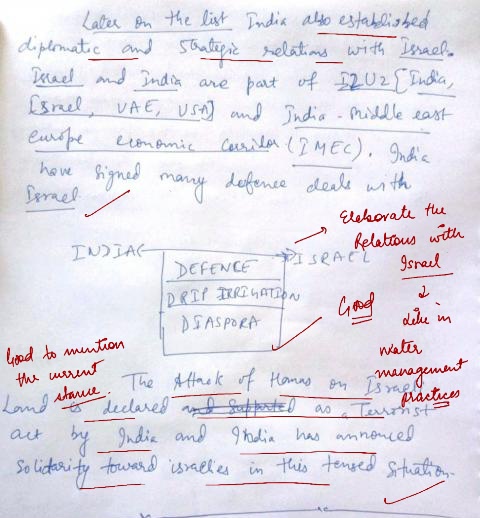 Later on the list India also established
diplomatic and strategic relations with Israel.
Israel and India are part of I2U2 [India,
Israel, UAE, USA] and India - Middle east
europe economic corridor (IMEC). India
have signed many defence deals with
Israel.
Elaborate the
Relations with
Israel
like in
water
management
practices
INDIA
ISRAEL
DEFENCE
DRIP IRRIGATION
DIASPORA
Good
Good to mention
the current
stance.
The Attack of Hamas on Israel
Land is declared and supported as Terrorist
act by India and India has annonced
solidarity toward israelies in this tensed situation.